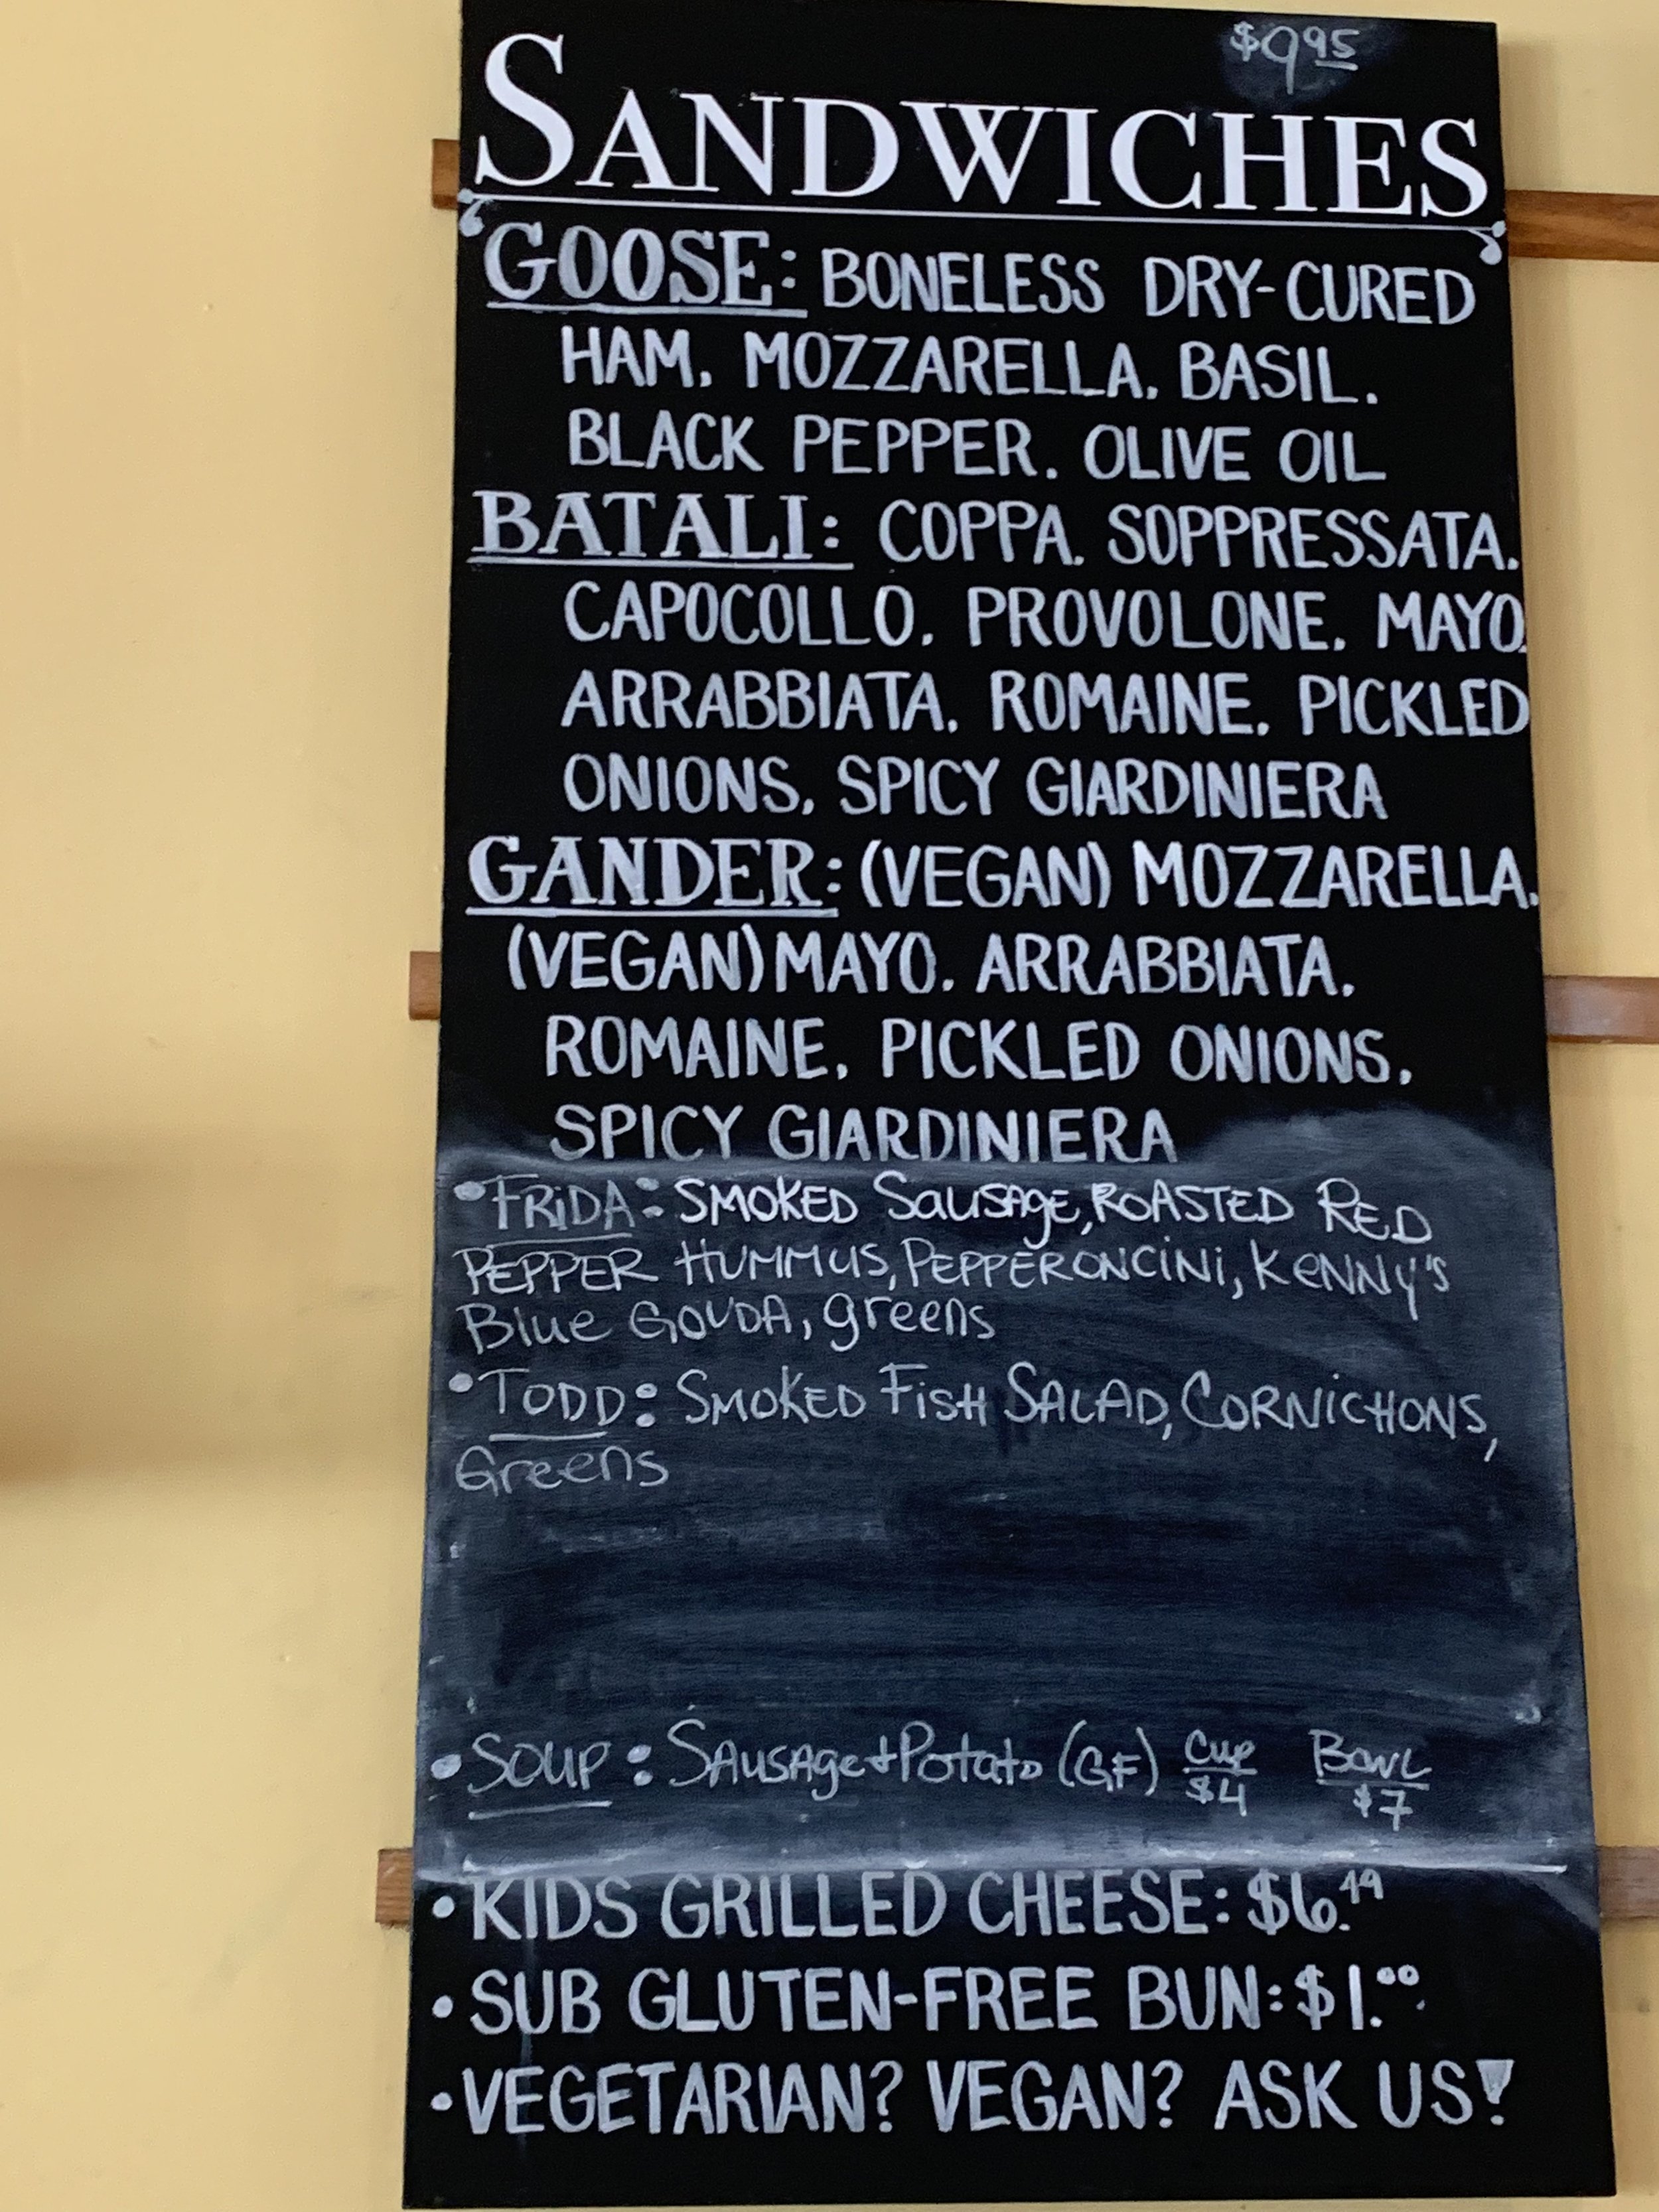 $9.95
SANDWICHES
GOOSE: BONELESS DRY-CURED
HAM, MOZZARELLA, BASIL,
BLACK PEPPER, OLIVE OIL
BATALI: COPPA, SOPPRESSATA,
CAPOCOLLO, PROVOLONE, MAYO,
ARRABBIATA, ROMAINE, PICKLED
ONIONS, SPICY GIARDINIERA
GANDER: (VEGAN) MOZZARELLA,
(VEGAN) MAYO, ARRABBIATA,
ROMAINE, PICKLED ONIONS,
SPICY GIARDINIERA
•FRiDA: SMOKED SausAge, ROASTED RED
PEPPER HUMMUS, PEPPERONCiNi, KeNNy's
Blue GOUDA, greens
•TODD: SMOKED FisH SALAD, CORNiCHONS,
Greens
•SOUP: SAusAge + Potato (GF) Cup $4 Bowl $7
•KIDS GRILLED CHEESE: $6.49
•SUB GLUTEN-FREE BUN: $1.00
•VEGETARIAN? VEGAN? ASK US!